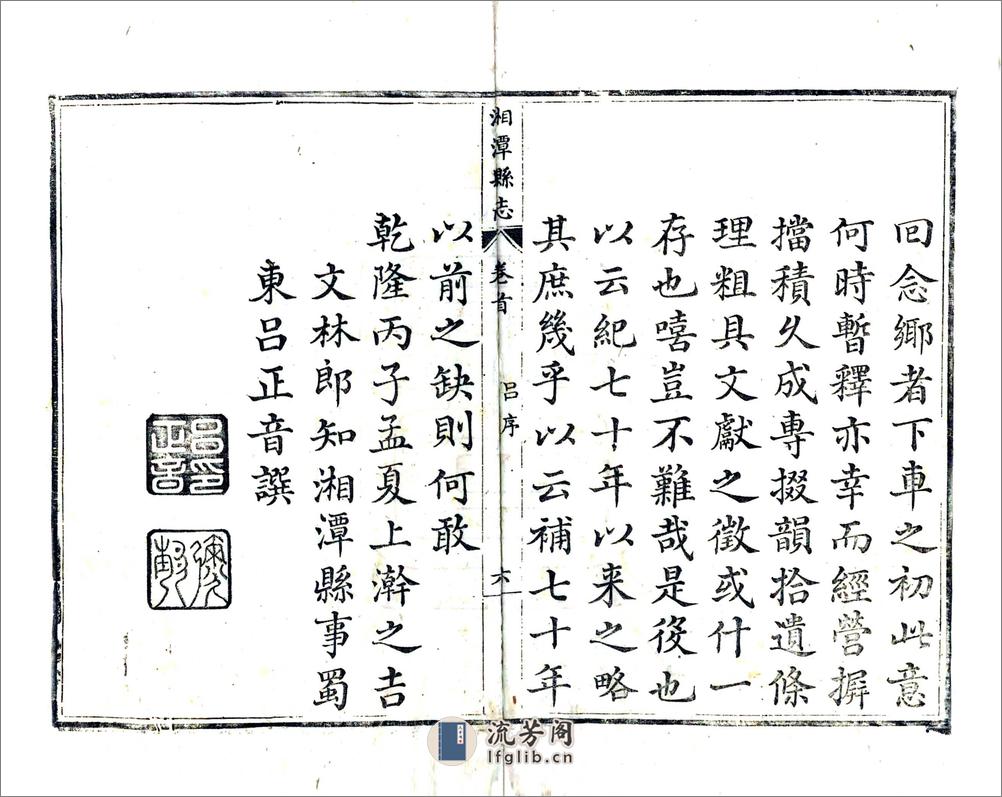 回念鄉者下車之初此意
何時暫釋亦幸而經營摒
擋積久成專掇韻拾遺條
理粗具文獻之徵或什一
存也嘻豈不難哉是役也
以云紀七十年以来之略
其庶幾乎以云補七十年
湘潭縣志
卷首
吕序
六
以前之缺則何敢
乾隆丙子孟夏上澣之吉
文林郎知湘潭縣事蜀
東吕正音譔
吕印正音
流芳阁
lfglib.cn